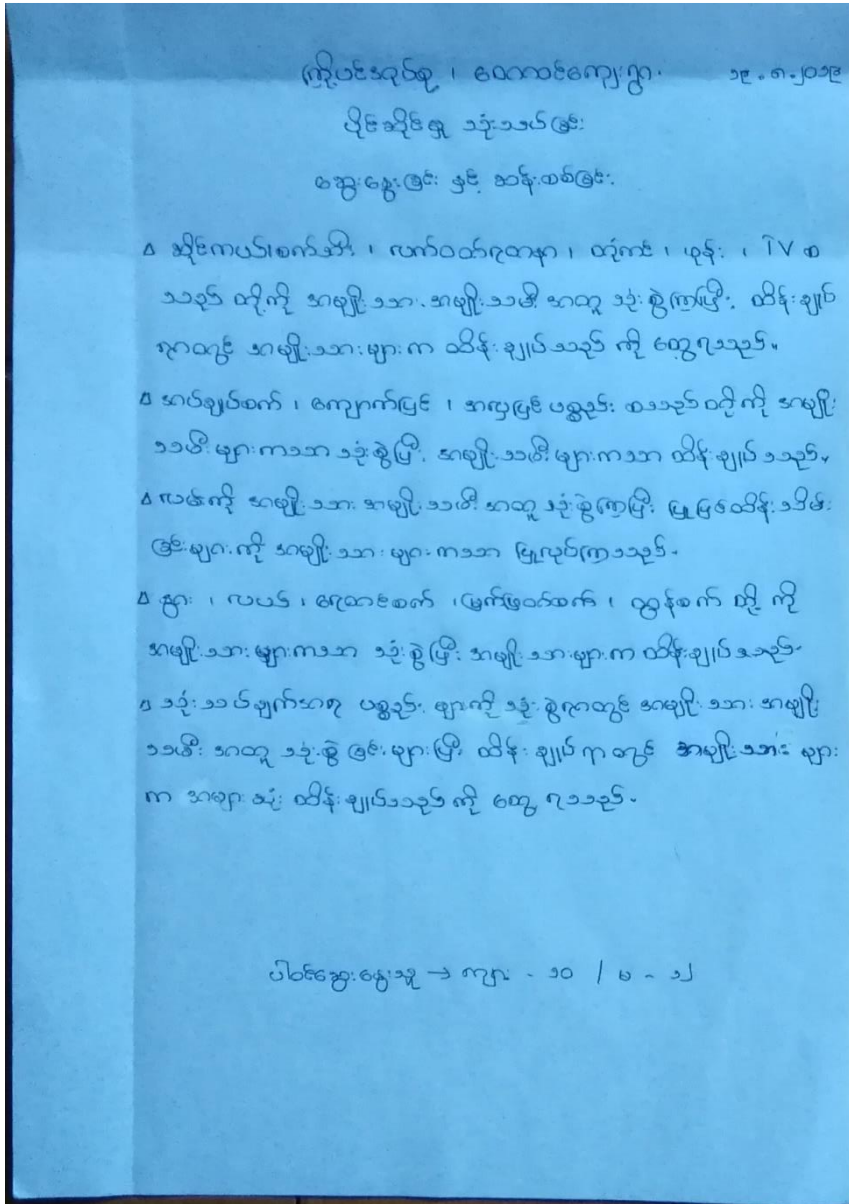 ကြိုပင်အုပ်စု ၊ ဝေကထင်ကျေးရွာ. ၁၉.၈.၂၀၁၉
ပိုင်ဆိုင်မှု သုံးသပ်ခြင်း
ဆွေးနွေးခြင်း နှင့် ဆန်းစစ်ခြင်း.
∆ ဆိုင်ကယ်၊ စက်ဘီး ၊ လက်ဝတ်ရတနာ ၊ တိုက် ၊ ဖုန်း ၊ TV စ
သည် တို့ကို အမျိုးသား. အမျိုးသမီး အတူ သုံးစွဲကြပြီး. ထိန်းချုပ်
ရာတွင် အမျိုးသားများက ထိန်းချုပ်သည် ကို တွေ့ရသည်။
∆ အပ်ချုပ်စက် ၊ ကျောက်ပြင် ၊ အလှပြင် ပစ္စည်း စသည် တို့ ကို အမျိုး
သမီးများကသာ သုံးစွဲပြီး. အမျိုးသမီးများကသာ ထိန်းချုပ်သည်။
∆ လမ်းကို အမျိုးသား. အမျိုးသမီး အတူ သုံးစွဲကြပြီး ပြုပြင်ထိန်းသိမ်း
ခြင်းများ ကို အမျိုးသား များကသာ ပြုလုပ်ကြသည်.
∆ နွား ၊ လယ် ၊ ရေတင်စက် ၊ မြက်ဖြတ်စက် ၊ ထွန်စက် တို့ ကို
အမျိုးသားများကသာ သုံးစွဲပြီး အမျိုးသားများက ထိန်းချုပ်သည်.
∆ သုံးသပ်ချက်အရ ပစ္စည်း များကို သုံးစွဲရာတွင် အမျိုးသား အမျိုး
သမီး အတူ သုံးစွဲ ခြင်း များပြီး ထိန်းချုပ် ရာတွင် အမျိုးသား များ
က အများဆုံး ထိန်းချုပ်သည် ကို တွေ့ ရသည်.
ပါဝင်ဆွေးနွေးသူ → ကျား - ၁၀ / မ - ၁၂